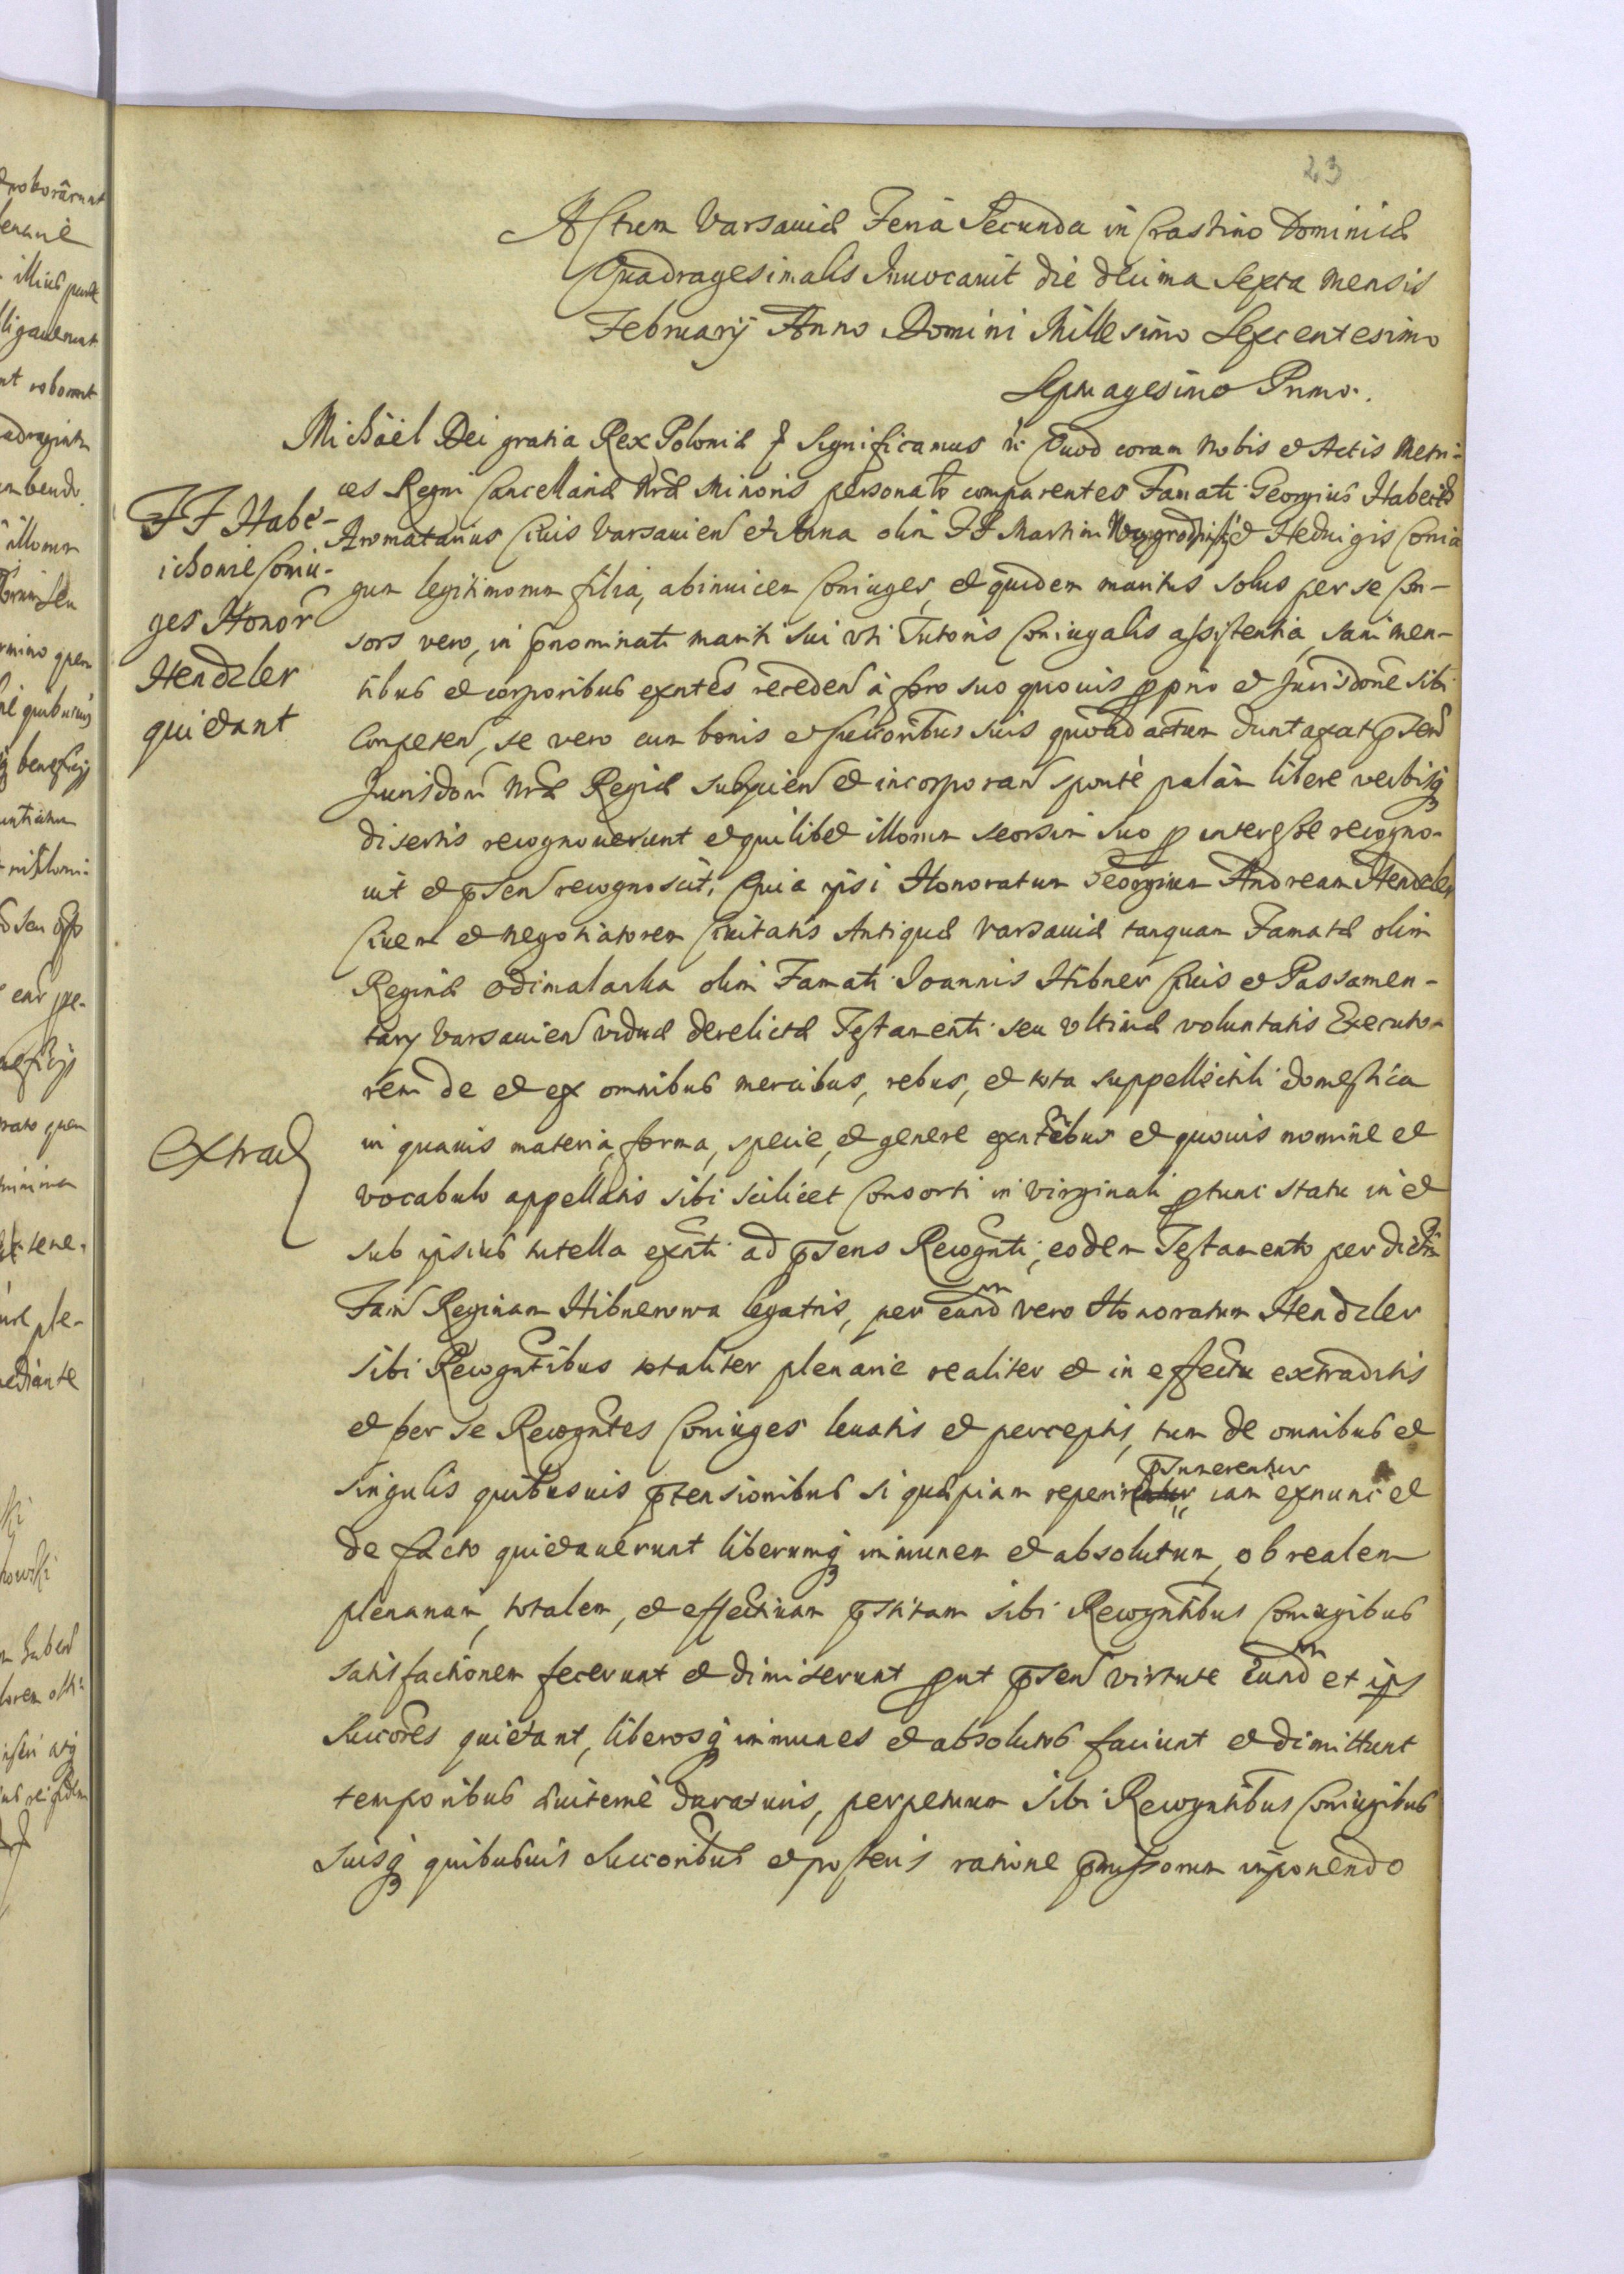 23
Actum Varsaviæ Feria Secunda in Crastino Dominicæ
Quadragesimalis Invocavit die decima Sexta mensis
February Anno Domini Millesimo Sexcentesimo
Septuagesimo Primo.
Michäel Dei gratia Rex Poloniæ Significamus Quod coram Nobis et Actis Metri-
ces Regni Cancellariæ Nræ Minoris personalr comparentes Famati Georgius
Aromatarius Civis Varsavien et Anna olim FF Martini et Hedvigis Coniu
gum legitimorum filia, abinvicem Coniuges, et quidem maritus solus per se Con-
sors vero, in pnominati mariti sui uti Tutoris Coniugalis assistentia, sani men-
tibus et corporibus exntes receden à foro suo quovis pprio et Jurisdone sibi
Competen, se vero cum bonis et succoribus suis quoad actum duntaxat psen
Jurisdoni Nræ Regiæ subijcien et incorporan sponte palàm libere verbisq
disertis recognoverunt et quilibet illorum seorsim suo p interesse recogno-
vit et psen recognoscit, Quia ipsi Honoratum Georgium Andream Hendzler
Civem et negotiatorem Civitatis Antiquæ Varsaviæ tanquam Famatæ olim
Reginæ olim Famati Joannis Hibner Civis et Passamen-
tarij Varsavien viduæ derelictæ Testamenti seu ultimæ voluntatis Executo-
rem de et ex omnibus mercibus, rebus, et tota suppellectili domestica
in quavis materia, forma, specie, et genere exntibus et quovis nomine et
vocabulo appellatis sibi scilicet Consorti in virginali ptunc statu in et
sub ipsius tutella exnti ad psens Recognti, eodem Testamento per dictam
Fam Reginam Hibnerowa legatis, per eundm vero Honoratum Hendzler
sibi Recogntibus totaliter plenarie realiter et in effectu extraditis
et per se Recogntes Coniuges levatis et perceptis, tum de omnibus et
singulis quibusvis ptensionibus si quæpiam reperirentur psumerentur iam exnunc et
de facto quietaverunt liberumq immunem et absolutum, ob realem
plenariam, totalem, et effectivam pstitam sibi Recogntibus Coniugibus
satisfactionem fecerunt et dimiserunt put psen virtute Eundm et ips
Succores quietant, liberosq immunes et absolutos faciunt et dimittunt
temporibus duraturis, perpetuum sibi Recogntibus Coniugibus
suisq quibusvis Succoribus et posteris ratione pmissorum imponendo
FF Habe-
ichowie Coniu-
ges Honor
Hendzler
quietant
Extrad